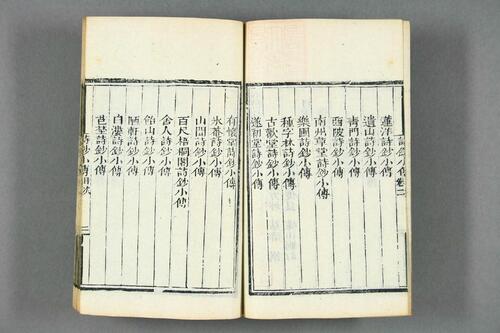 詩鈔小傳卷二
蓮洋詩鈔小傳
遺山詩鈔小傳
青門詩鈔小傳
西陂詩鈔小傳
南州草堂詩鈔小傳
樂圃詩鈔小傳
種字林詩鈔小傳
古歡堂詩鈔小傳
遂初堂詩鈔小傳
有懷堂詩鈔小傳
氷菴詩鈔小傳
山聞詩鈔小傳
百尺梧桐閣詩鈔小傳
舍人詩鈔小傳
飴山詩鈔小傳
陋軒詩鈔小傳
白漊詩鈔小傳
芭
詩鈔小傳
詩鈔小傳目次
二